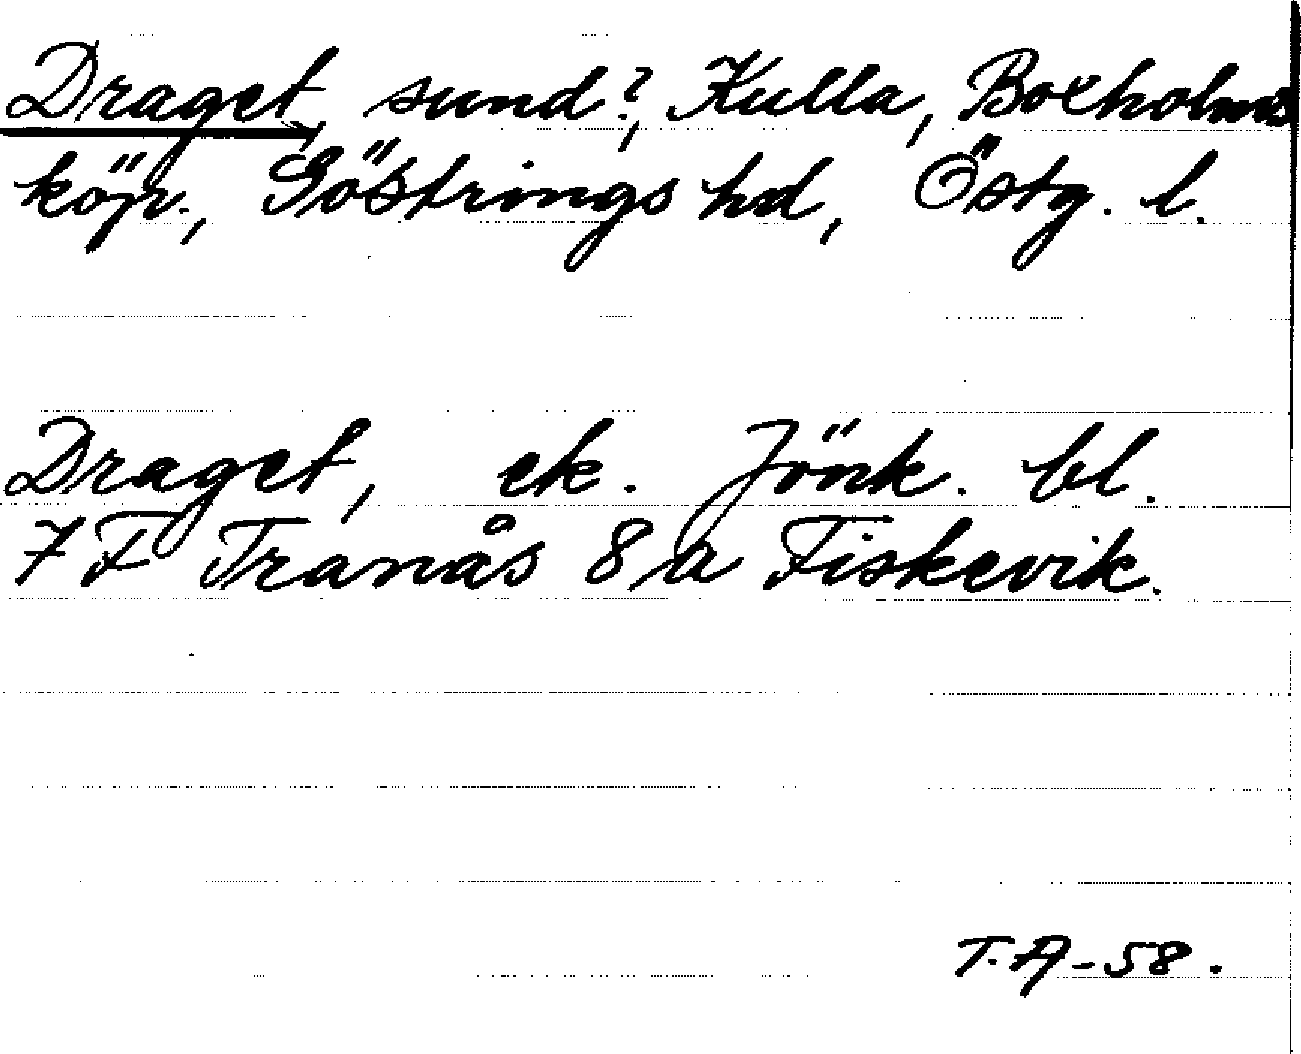 Draget, sund?, Kulla, Boxholms
köp., Göstrings hd, Östg. l.
Draget, ek. Jönk. bl.
7 F Tranås 8 a Fiskevik.
T.A-58.